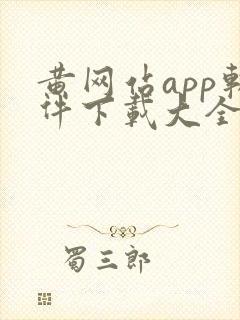 黄网站app软
件下载大全
蜀三郎